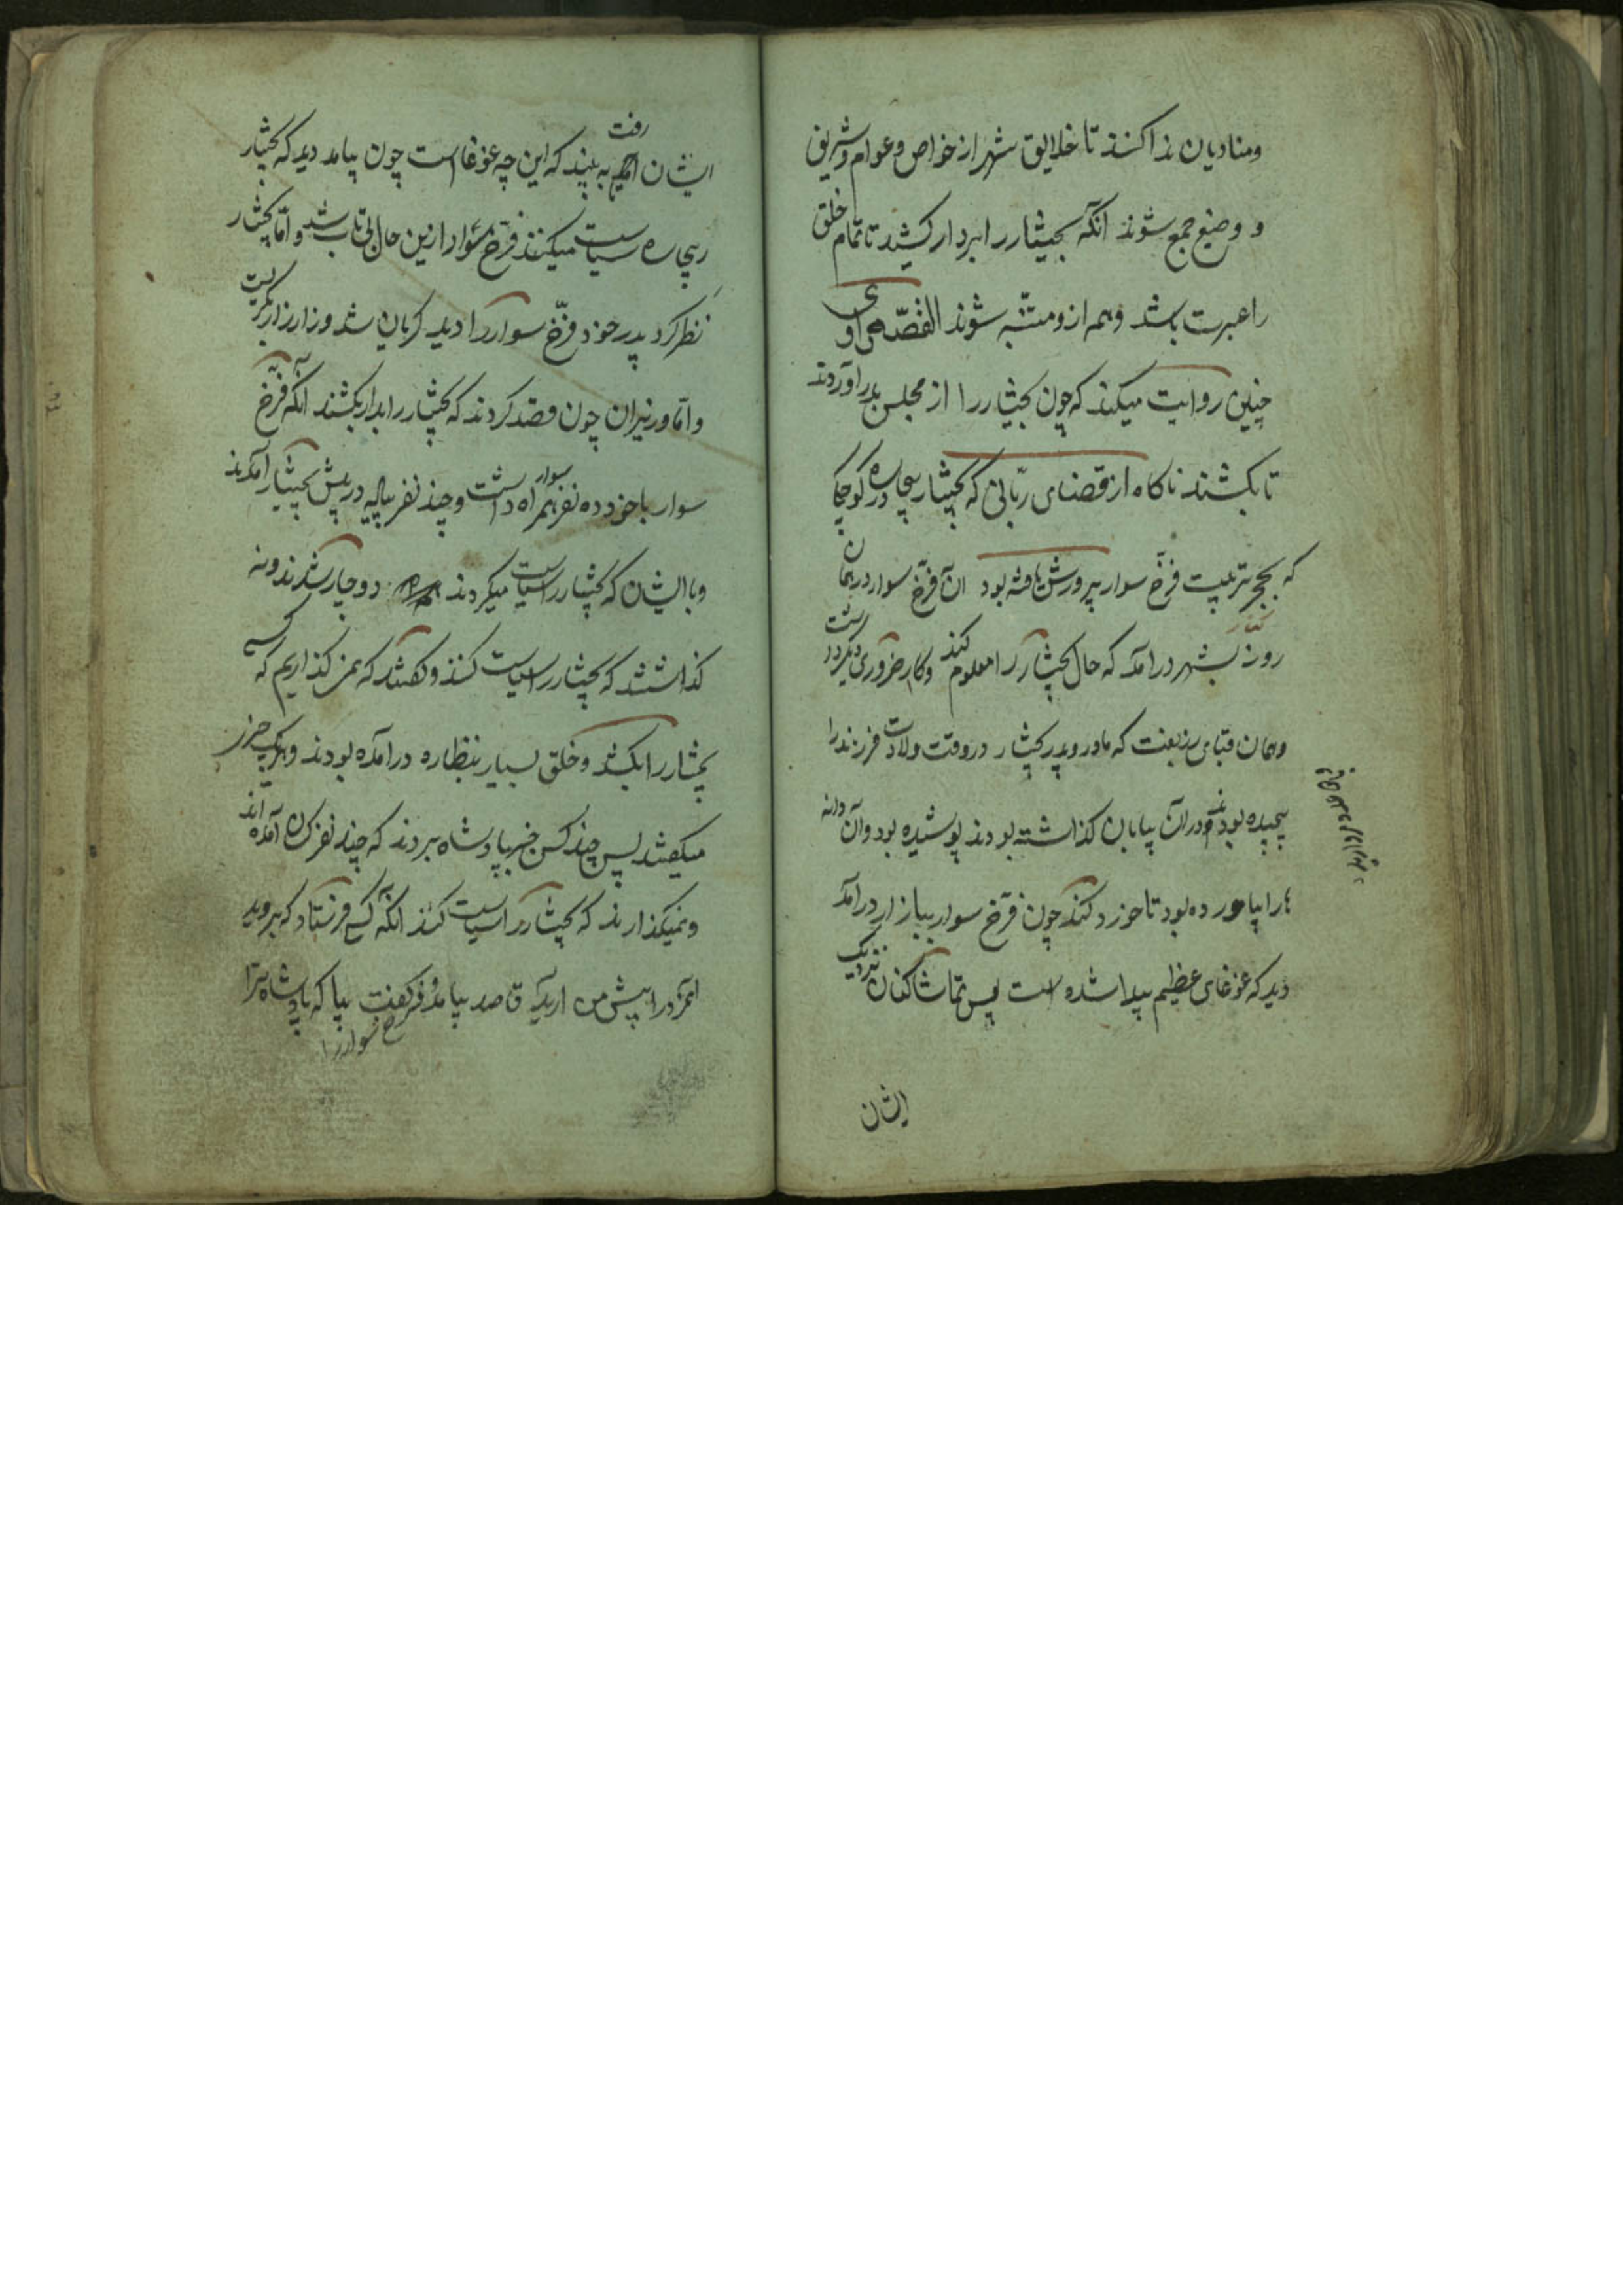 ومنادیان ندا کنند تا خلایق شهر از خواص و عوام و شریف
و وضیع جمع شوند انگه بختیار را بردار کشید تا تمام خلق
را عبرت باشد و همه ازو متنبه شوند القصّه راوی
چنین روایت میکند که چون بختیار را از مجلس بدر اوردند
تا بکشند ناکاه از قضای ربّانی که بختیار بیچاره در کوچکی
که بحجر تربیت فرّخ سوار پرورش یافته بود آن فرّخ سوار در همان
روز بشهر درامد که حال بختیار را معلوم کند وکار ضروری دیگر داشت
وهمان قبای زربفت که مادر وپدر بختیار در وقت ولادت فرزند را
پیچیده بودند ودر آن بیابان کذاشته بودند پوشیده بود وآن دانه
را بیاورده بود تا خورد کند چون فرّخ سوار ببازار درامد
دید که غوغای عظیم پیدا شده است پس تماشا کنان نزدیک
ایشان
ایشان رفت به بیند که این چه غوغا است چون بیامد دید که بختیار
بیچاره سیاست میکنند فرّخ سوار ازین حال بی تاب شد و امّا بختیار
نظر کرد پدر خود فرّخ سوار را دید کریان شد وزار زار بکریست
وامّا وزیران چون قصد کردند که بختیار را بدار بکشند انگه فرّخ
سوار با خود ده نفر سوار همراه داشت وچند نفر پیاله در پیش بختیار آمدند
وبا ایشان که بختیار را سیاست میکردند دوچار شدند ونه
کذاشتند که بختیار را سیاست کنند وکفتند که نمی کذاریم که کسی
بختیار را بکشد وخلق بسیار بنظاره درامده بودند وهر یک چیز
میکفتند پس چند کس خبر بپادشاه بردند که چند نفر کسان آمده اند
ونمیکذارند که بختیار را سیاست کنند انگه کسی فرستاد که بروید
آنمرد را پیش من ارید قاصد بیامد و فرخ سوار را کفت بیا که پادشاه ترا